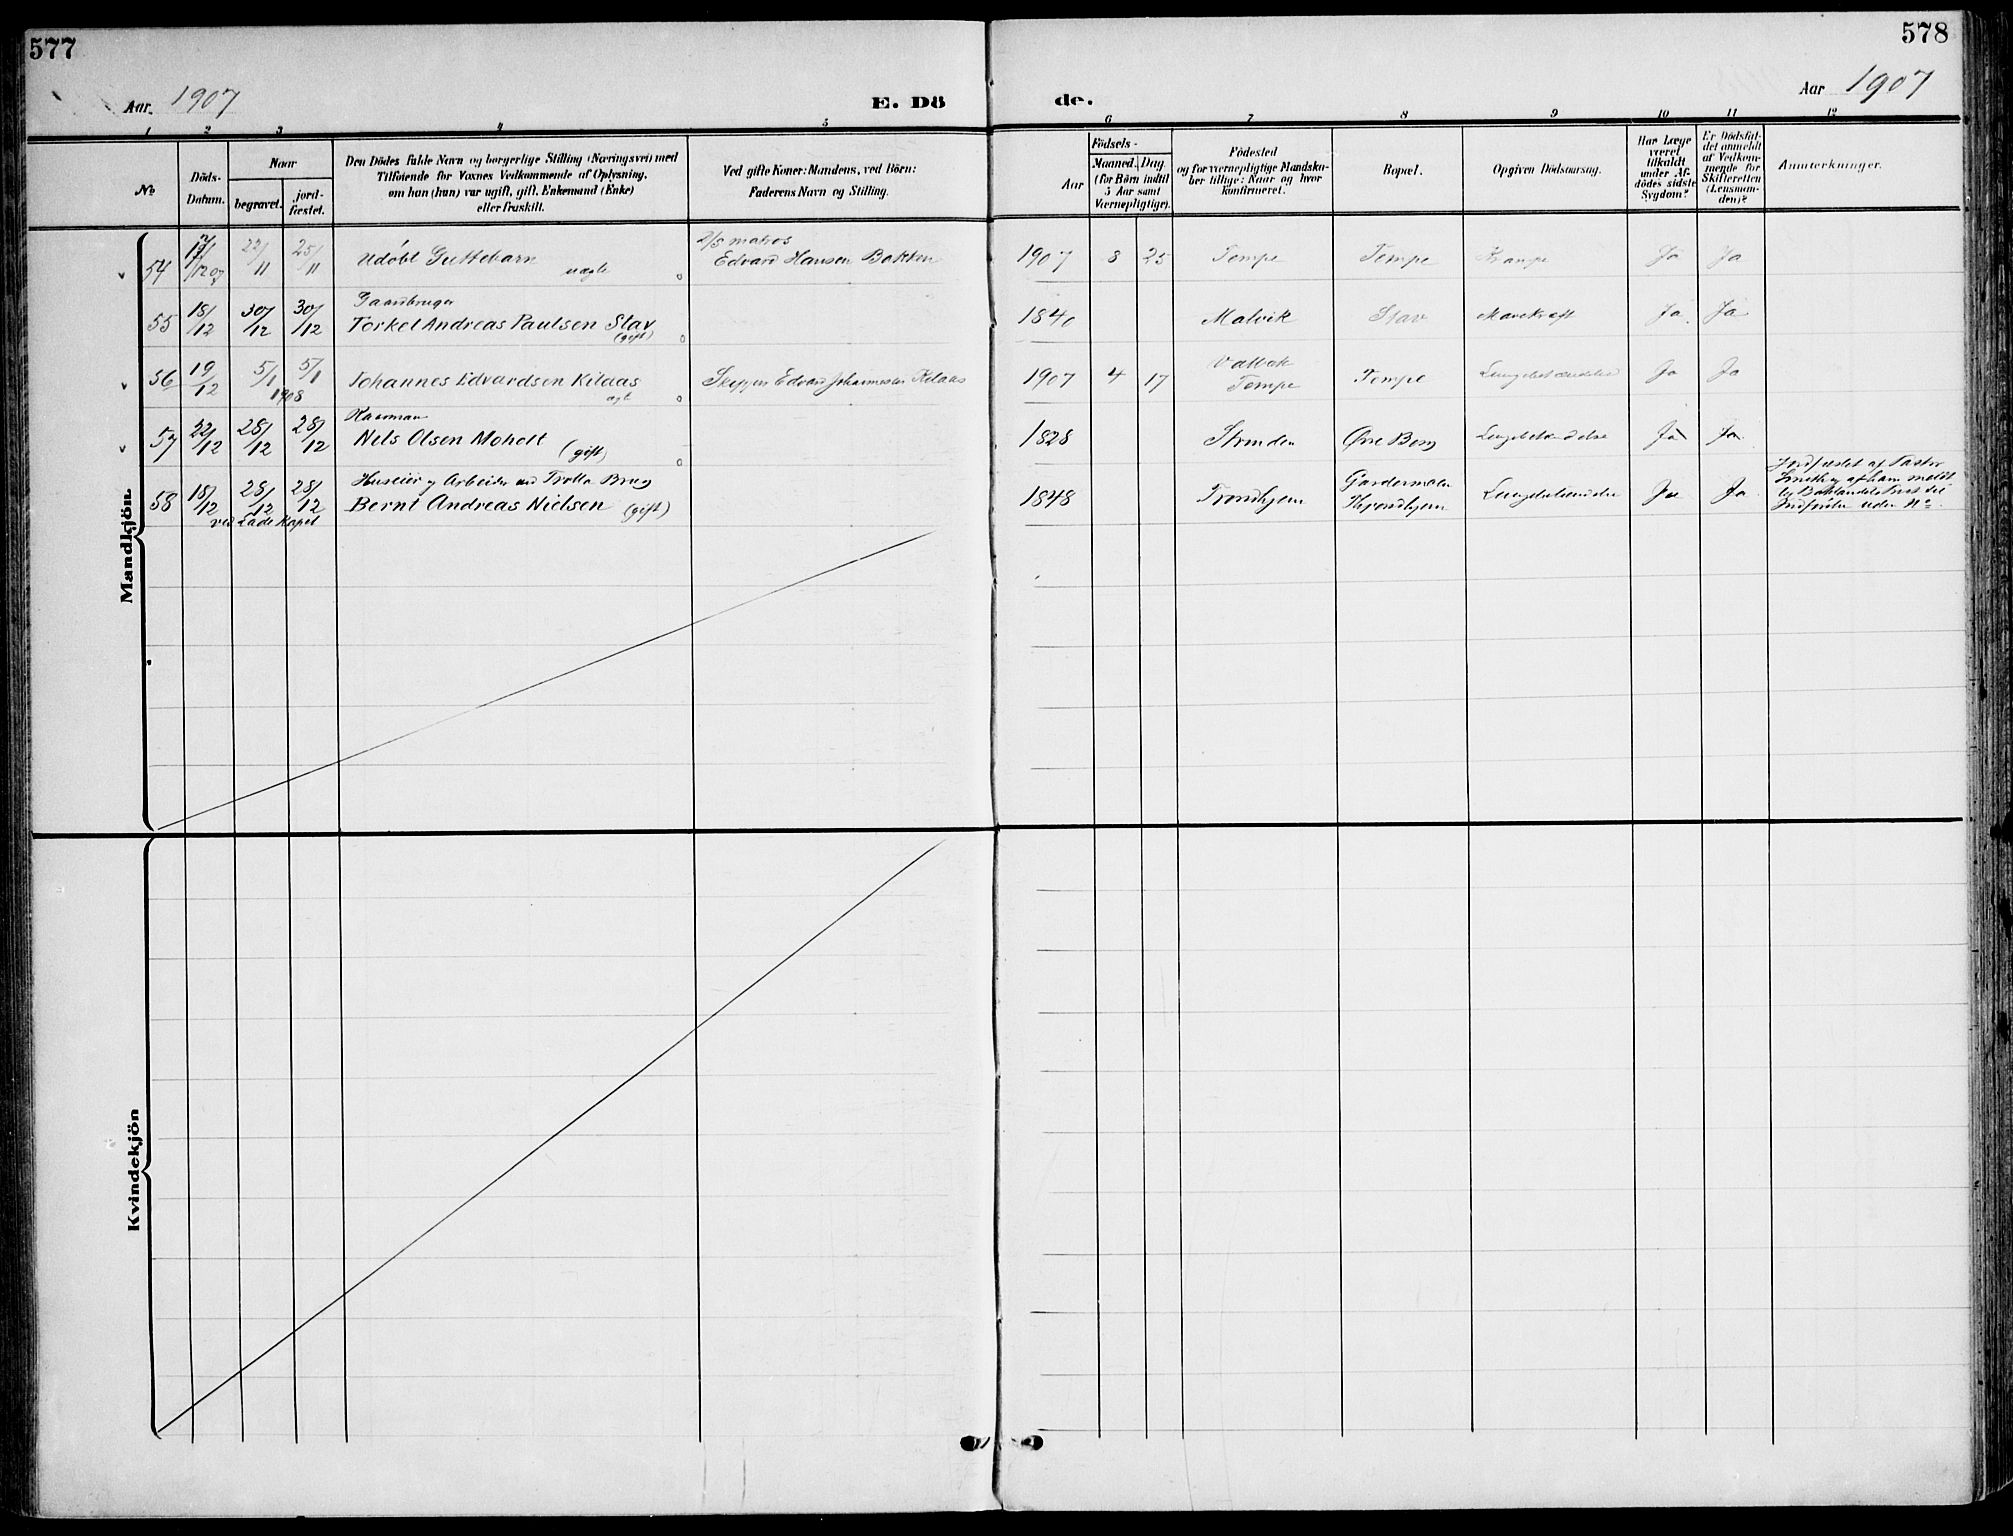 577
578
Aar 1907
E. Dö
de.
Aar 1907
1 2 3 4 5 6 7 8 9 10 11 12
No
Döds-
Datum.
Naar
begravet.
jord-
fæstet.
Den Dödes fulde Navn og borgerlige Stilling (Næringsvei) med
Tilföiende for Voxnes Vedkommende af Oplysning,
om han (hun) var ugift, gift, Enkemand (Enke)
eller fraskilt.
Ved gifte Koner: Mandens, ved Börn:
Faderens Navn og Stilling.
Födsels-
Aar
Maaned.
Dag.
(for Börn indtil
5 Aar samt
Værnepligtige).
Födested
og for værnepligtige Mandska-
ber tillige: Naar og hvor
konfirmeret.
Bopæl.
Opgiven Dödsaarsag.
Har Læge
været
tilkaldt
under Af-
dödes sidste
Sygdom?
Er Dödsfal-
det anmeldt
af Vedkom-
mende for
Skifteretten
(Lensman-
den)?
Anmærkninger.
Mandkjön
54 22/11 25/11 Udöbt Guttebarn uægte
matros
Edvard Hansen Bakken 1907 8 25 Tempe Tempe Krampe Ja Ja
55 18/12 30/12 30/12 Gaardbruger
Torkel Andreas Paulsen Stav (gift) 1840 Malvik Stav Mavekræft Ja Ja
56 19/12 5/1 5/1 1908 Johannes Edvardsen Kilaas ægte
Skipper Edvard Johannesen Kilaas 1907 4 17 Valbek
Tempe Tempe Lungebetændelse Ja Ja
57 22/12 28/12 28/12 Kaarman
Nils Olsen Moholt (gift) 1828 Strinden Øvre Berg Lungebetændelse Ja Ja
58 18/12 28/12 28/12 Huseier og Arbeider ved Trolla Brug
Bernt Andreas Nielsen (gift)
ved Lade Kapel
1848 Trondhjem Gardermoen
Throndhjem Lungebetændelse Ja Ja Jordfæstet af Pastor
af ham meldt
Baklandets Præst til
Indförelse uden No.
Kvindekjön